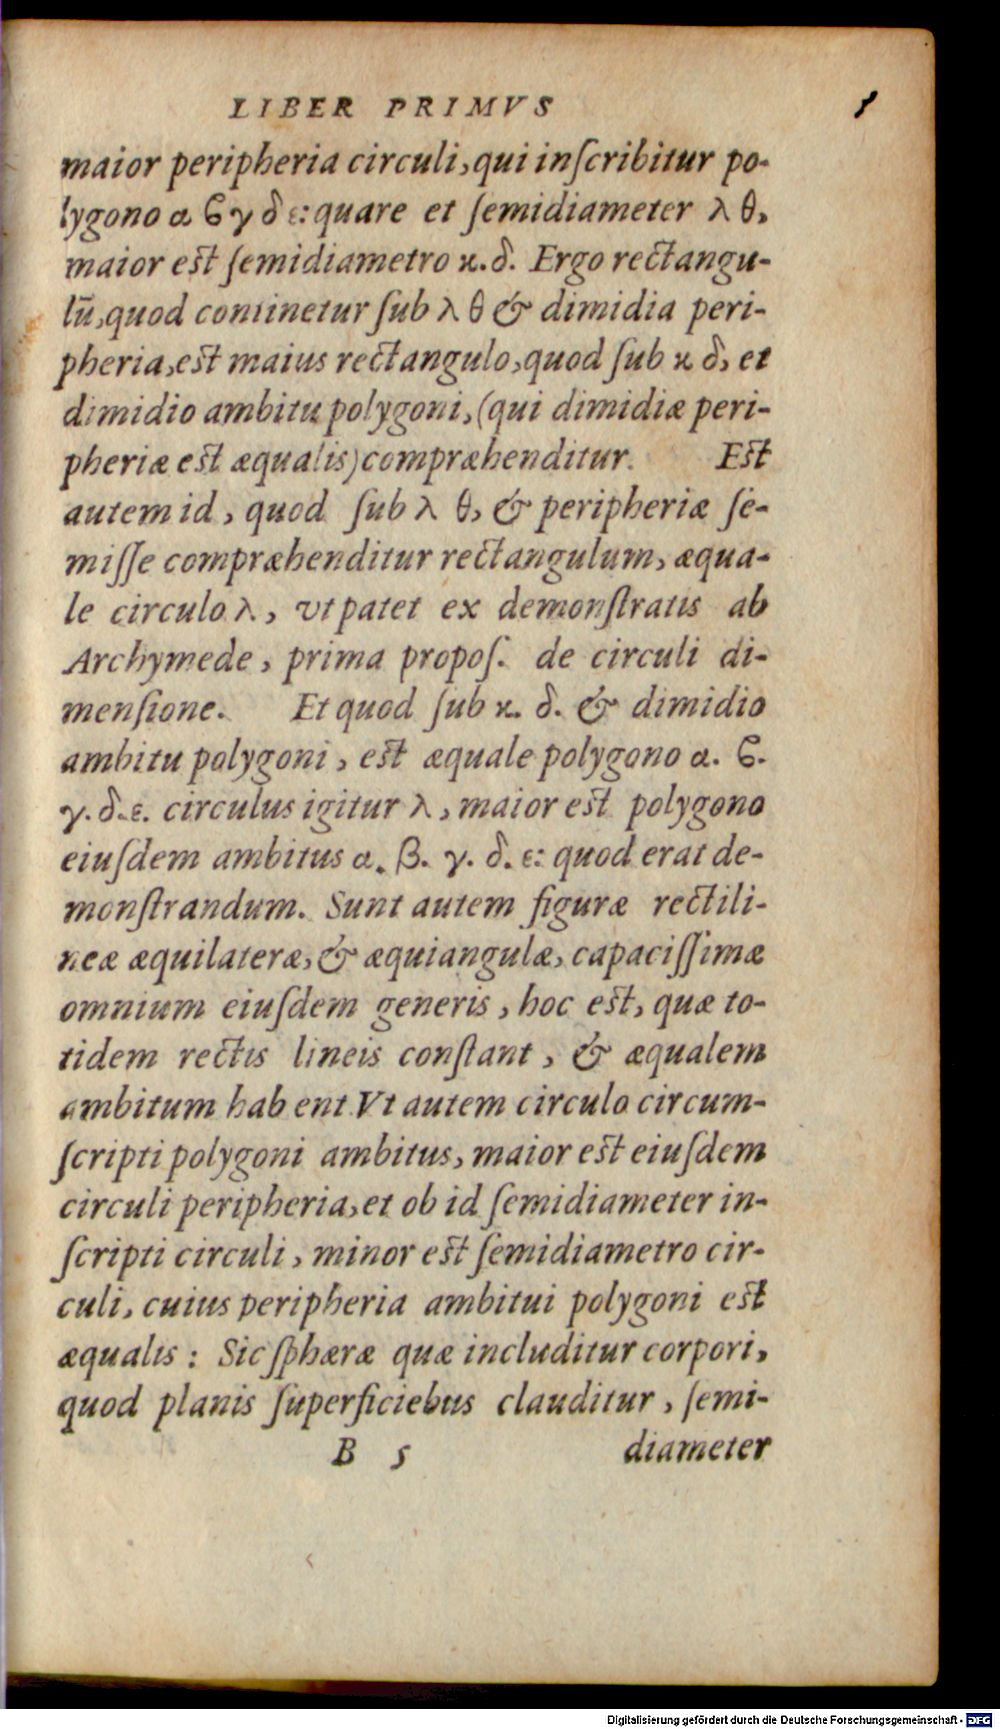 LIBER PRIMVS
maior peripheria circuli, qui inſcribitur po-
lygono α ϐ γ δ ε: quare et ſemidiameter λ θ,
maior est ſemidiametro κ. δ. Ergo rectangu-
lū, quod continetur ſub λ θ & dimidia peri-
pheria, est maius rectangulo, quod ſub κ δ, et
dimidio ambitu polygoni, (qui dimidiæ peri-
pheriæ est æqualis) compræhenditur. Est
autem id, quod ſub λ θ, & peripheriæ ſe-
miſſe compræhenditur rectangulum, æqua-
le circulo λ, vt patet ex demonſtratis ab
Archymede, prima propoſ. de circuli di-
menſione. Et quod ſub κ. δ. & dimidio
ambitu polygoni, est æquale polygono α. ϐ.
γ. δ. ε. circulus igitur λ, maior est polygono
eiuſdem ambitus α. β. γ. δ. ε: quod erat de-
monſtrandum. Sunt autem figuræ rectili-
neæ æquilateræ, & æquiangulæ, capaciſſimæ
omnium eiuſdem generis, hoc est, quæ to-
tidem rectis lineis conſtant, & æqualem
ambitum hab ent. Vt autem circulo circum-
ſcripti polygoni ambitus, maior est eiuſdem
circuli peripheria, et ob id ſemidiameter in-
ſcripti circuli, minor est ſemidiametro cir-
culi, cuius peripheria ambitui polygoni est
æqualis: Sic ſphæræ quæ includitur corpori,
quod planis ſuperficiebus clauditur, ſemi-
B 5 diameter
Digitalisierung gefördert durch die Deutsche Forschungsgemeinschaft - DFG